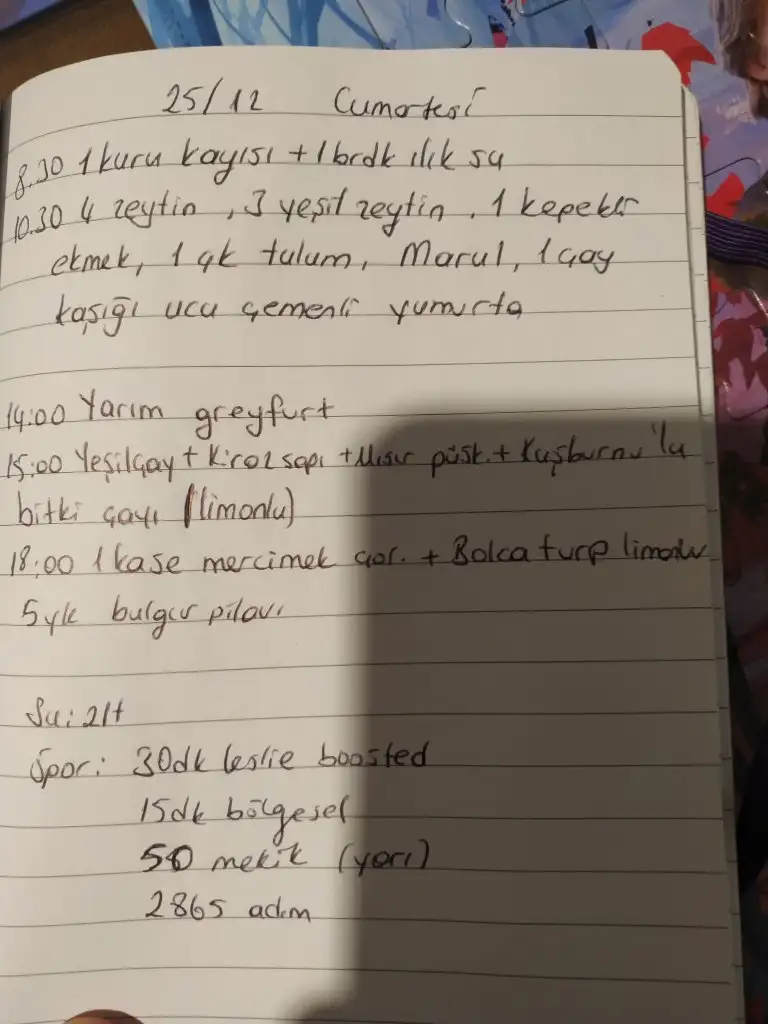 25/12 Cumartesi
8.30 1 kuru kayısı + 1 brdk ılık su
10.30 4 zeytin, 3 yeşil zeytin, 1 kepekli
ekmek, 1 çk tulum, Marul, 1 çay
kaşığı ucu çemenli yumurta
14:00 Yarım greyfurt
15:00 Yeşilçay + Kiraz sapı + Mısır püsk. + Kuşburnu'lu
bitki çayı (limonlu)
18:00 1 kase mercimek çor. + Bolca turp limonlu
5 yk bulgur pilavı
Su: 2lt
Spor: 30dk leslie boosted
15dk bölgesel
50 mekik (yarı)
2865 adım